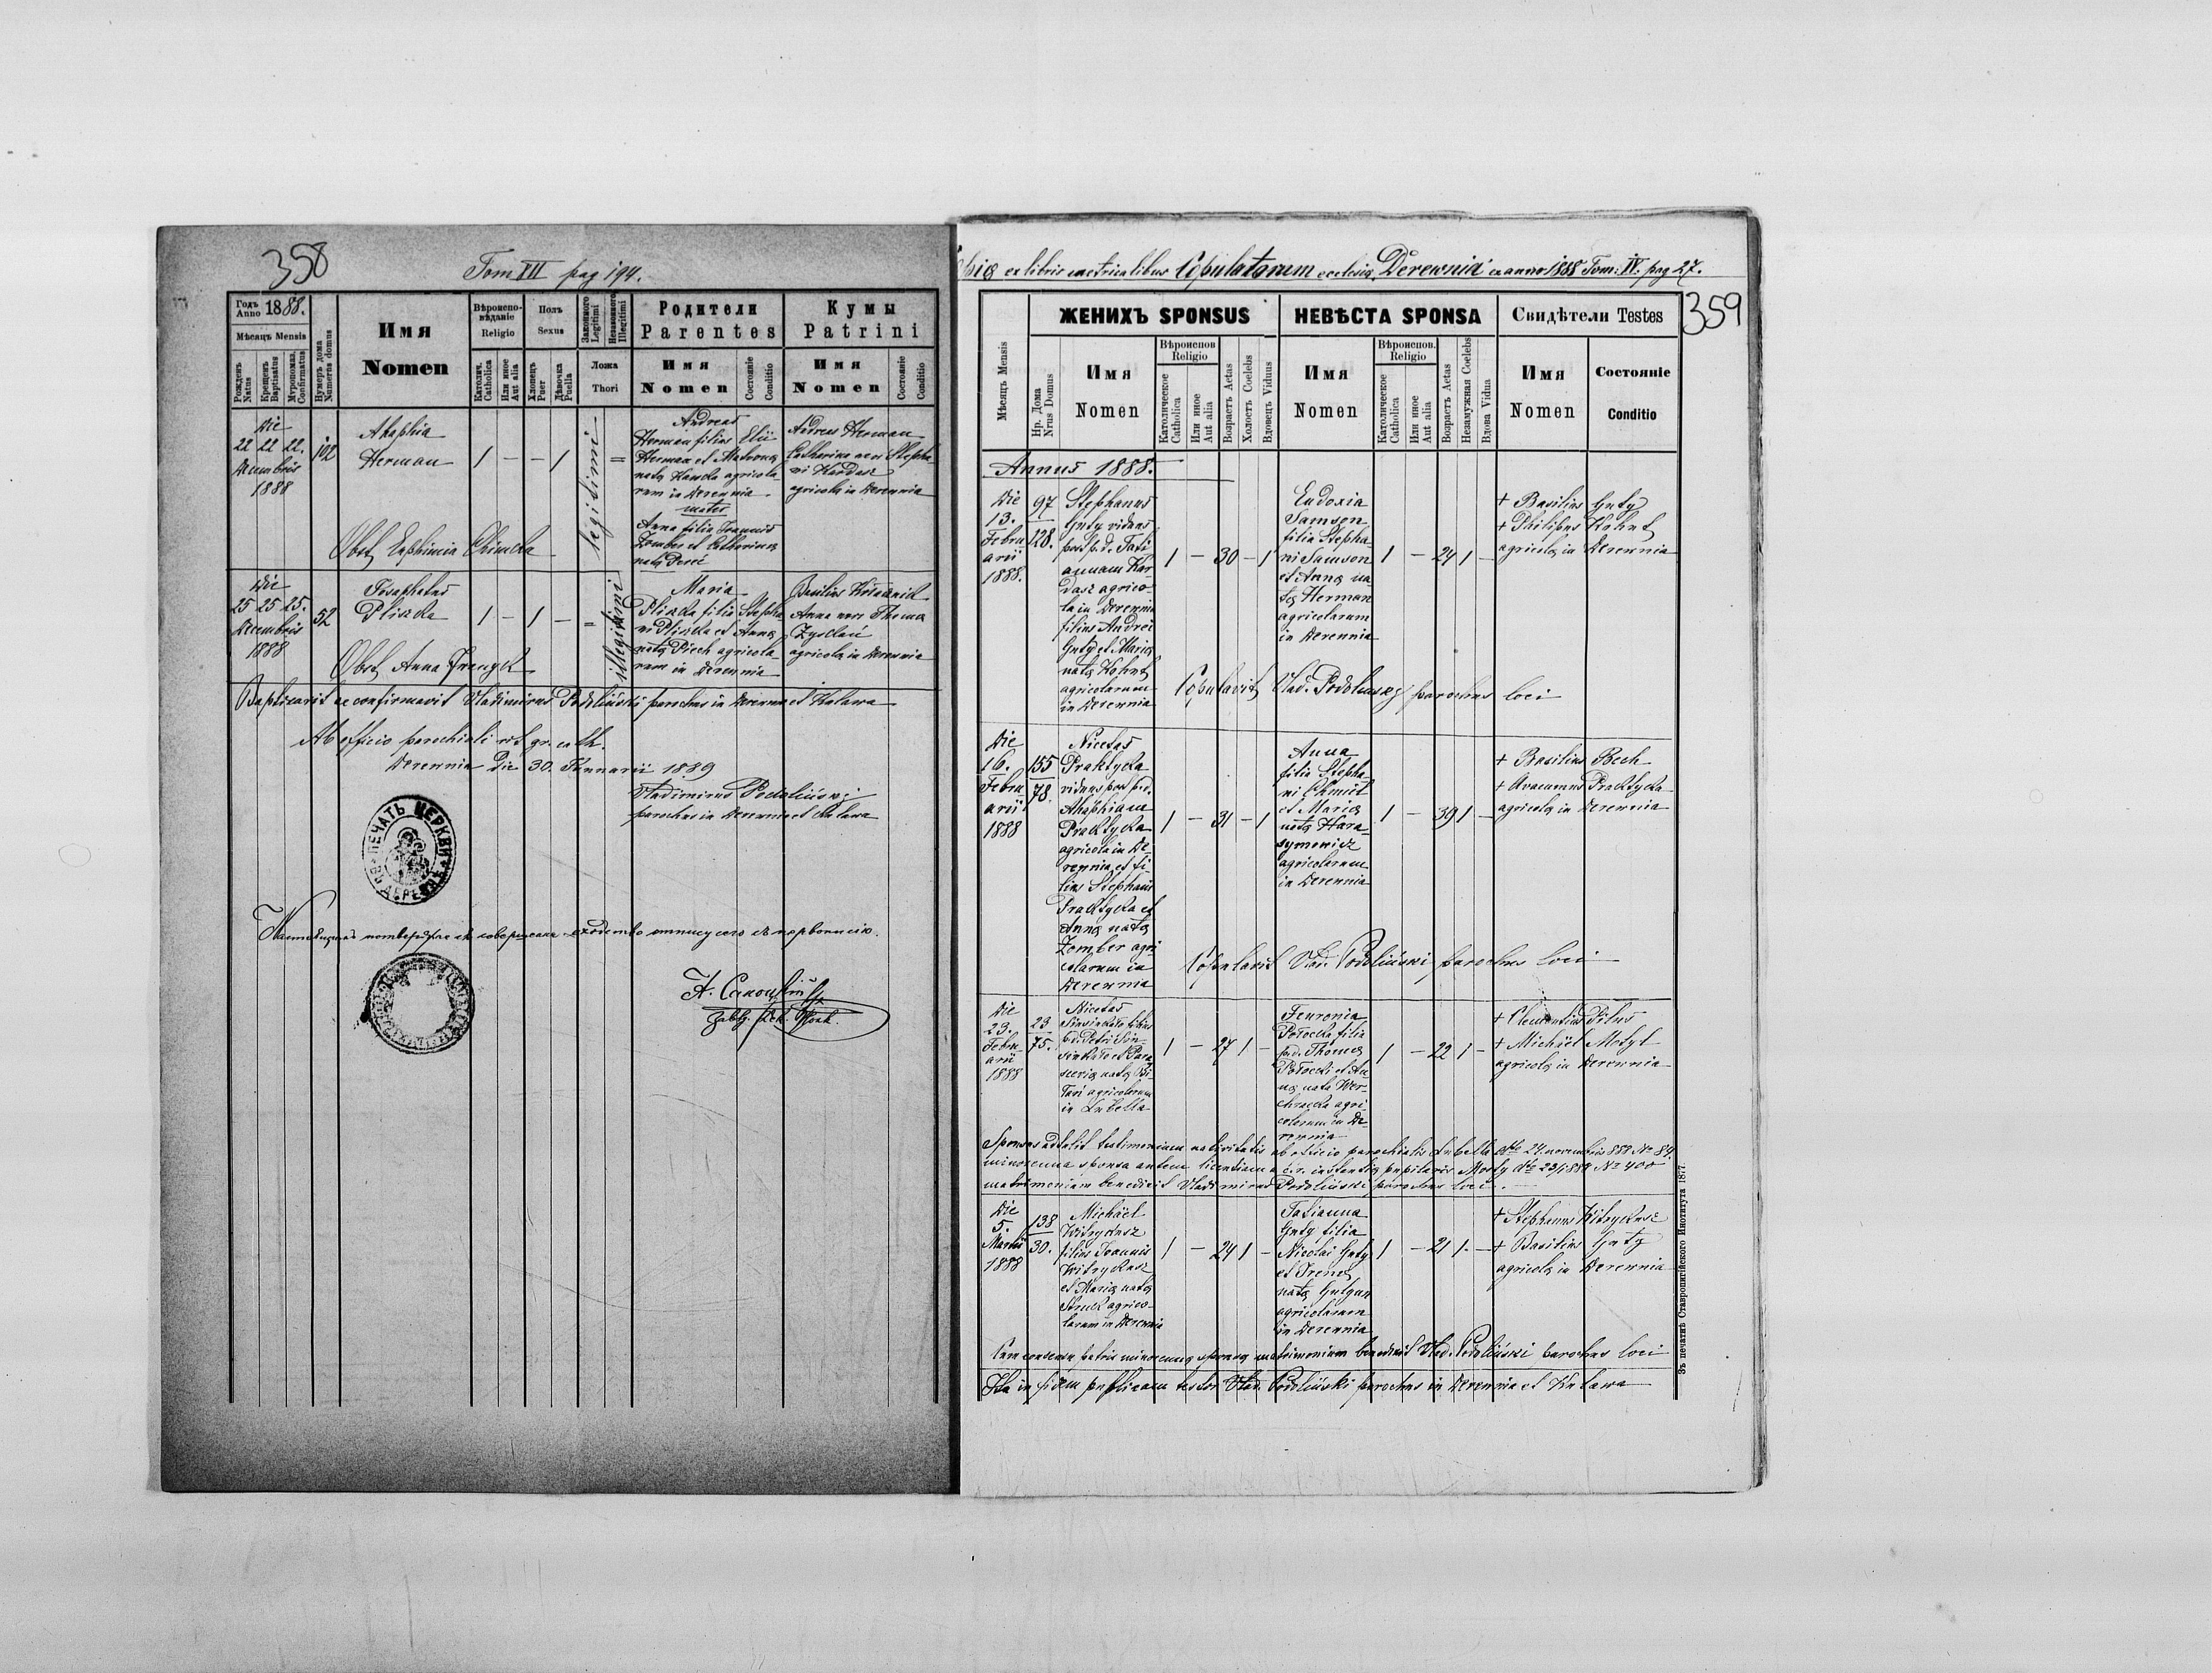 358
Tom VII pag 194.
Годъ Anno 1888.
Мѣсяцъ Mensis
Рожденъ Natus
Крещенъ Baptisatus
Муропомаз. Confirmatus
Нумеръ дома Numerus domus
Имя
Nomen
Вѣроиспо-
вѣданіе
Religio
Католич. Catholica
Или иное Aut alia
Полъ
Sexus
Хлопецъ Puer
Дѣвочка Puella
Законного Legitimi
Незаконного Illegitimi
Ложа
Thori
Родители
Parentes
Имя
Nomen
Состояніе Conditio
Кумы
Patrini
Имя
Nomen
Состояніе Conditio
Die
22 22 22.
Decembris
1888
102
Ahaphia
Herman
1 – – 1
legitimi
=
Andreas
Herman filius Elii
Herman et Matrona
nata agricola-
rum in Derewnia
mater
Anna filia Joannis
Zomber et Catharina
nata
Andreas Herman
Catharina uxor Stepha-
ni Kardasz
agricola in Derewnia
Obst. Euphimia
Die
25 25 25.
Decembris
1888
52
Josaphatus
Pliszka
1 – 1 –
=
illegitimi
Maria
Pliszka filia Stepha-
ni Pliszka et Anna
nata Piech agricola-
rum in Derewnia
Basilius
Anna uxor Thoma
agricola in Derewnia
Obst. Anna
Baptizavit ac confirmavit Vladimirus Podoliński parochus in Derewnia et Kulawa
Ab officio parochiali rit. gr. cath.
Derewnia Die 30. Januarii 1889
Vladimirus Podoliński
parochus in Derewnia et Kulawa
ПЕЧАТЬ ЦЕРКВИ ВЪ ДЕРЕВНѢ
359
Copia ex libris metricalibus Copulatorum ecclesia Derewnia ex anno 1888 Tom: IV. pag 27.
Мѣсяцъ Mensis
Нр. Дома Nrus Domus
ЖЕНИХЪ SPONSUS
Имя
Nomen
Вѣроиспов
Religio
Католическое Catholica
Или иное Aut alia
Возрастъ Aetas
Холостъ Coelebs
Вдовецъ Viduus
НЕВѢСТА SPONSA
Имя
Nomen
Вѣроиспов.
Religio
Католическое Catholica
Или иное Aut alia
Возрастъ Aetas
Незамужная Coelebs
Вдова Vidua
Свидѣтели Testes
Имя
Nomen
Состояніе
Conditio
Annus 1888.
Die
13.
Febru
arii
1888.
97
128.
Stephanus
Guty viduus
post p. d. Tati
annam Kar-
dasz agrico-
la in Derewnia
filius Andrei
Guty et Maria
nata Kohut
agricolarum
in Derewnia
1 – 30 – 1
Eudoxia
Samson
filia Stepha-
ni Samson
et Anna na
ta Herman
agricolarum
in Derewnia
1 – 24 1 –
+ Basilius Guty
+ Philipus Kohut
agricola in Derewnia
Copulavit Vlad. Podoliński parochus loci
Die
16.
Febru
arii
1888
155
78.
Nicetas
Praktyka
viduus post p. d.
Ahaphiam
Praktyka
agricola in De-
rewnia, et fi-
lius Stephani
Praktyka et
Anna nata
Zomber agri
colarum in
Derewnia
1 – 31 – 1
Anna
filia Stepha-
ni Chmiel
et Maria
nata Hara-
symowicz
agricolarum
in Derewnia
1 – 39 1 –
+ Basilius Bech
+ Avacumus Praktyka
agricola in Derewnia
Copulavit Vlad. Podoliński parochus loci
Die
23.
Febru
arii
1888
23
75.
Nicetas
filius
p. d. Petri
et Para
scevia nata
agricolarum
in Lubella
1 – 27 1 –
Feuronia
Potocka filia
p. d. Thoma
Potocki et An
na nata Wer-
chracka agri
colarum in De-
rewnia
1 – 22 1 –
+ Clementius Pitus
+ Michäel Motyl
agricola in Derewnia
Sponsus attulit testimonium nativitatis ab officio parochialis Lubella dto 24. novembris 1887 No 84.
minorenna sponsa autem licentiam instantia pupilaris Mosty No 400
matrimonium benedixit Vladimirus Podoliński parochus loci.
Die
5.
Martii
1888
138
30.
Michäel
Witrykusz
filius Joannis
Witrykusz
et Maria nata
agrico-
larum in Derewnia
1 – 24 1 –
Tatianna
Guty filia
Nicolai Guty
et Irena
nata
agricolarum
in Derewnia
1 – 21 1 –
+ Stephanus Witrykusz
+ Basilius Guty
agricola in Derewnia
Cum consensu patris minorenna sponsa matrimonium benedixit Vlad. Podoliński parochus loci
Ita in fidem publicam testor Vlad. Podoliński parochus in Derewnia et Kulawa
Зъ печатнѣ Ставропигійского Института 1877.